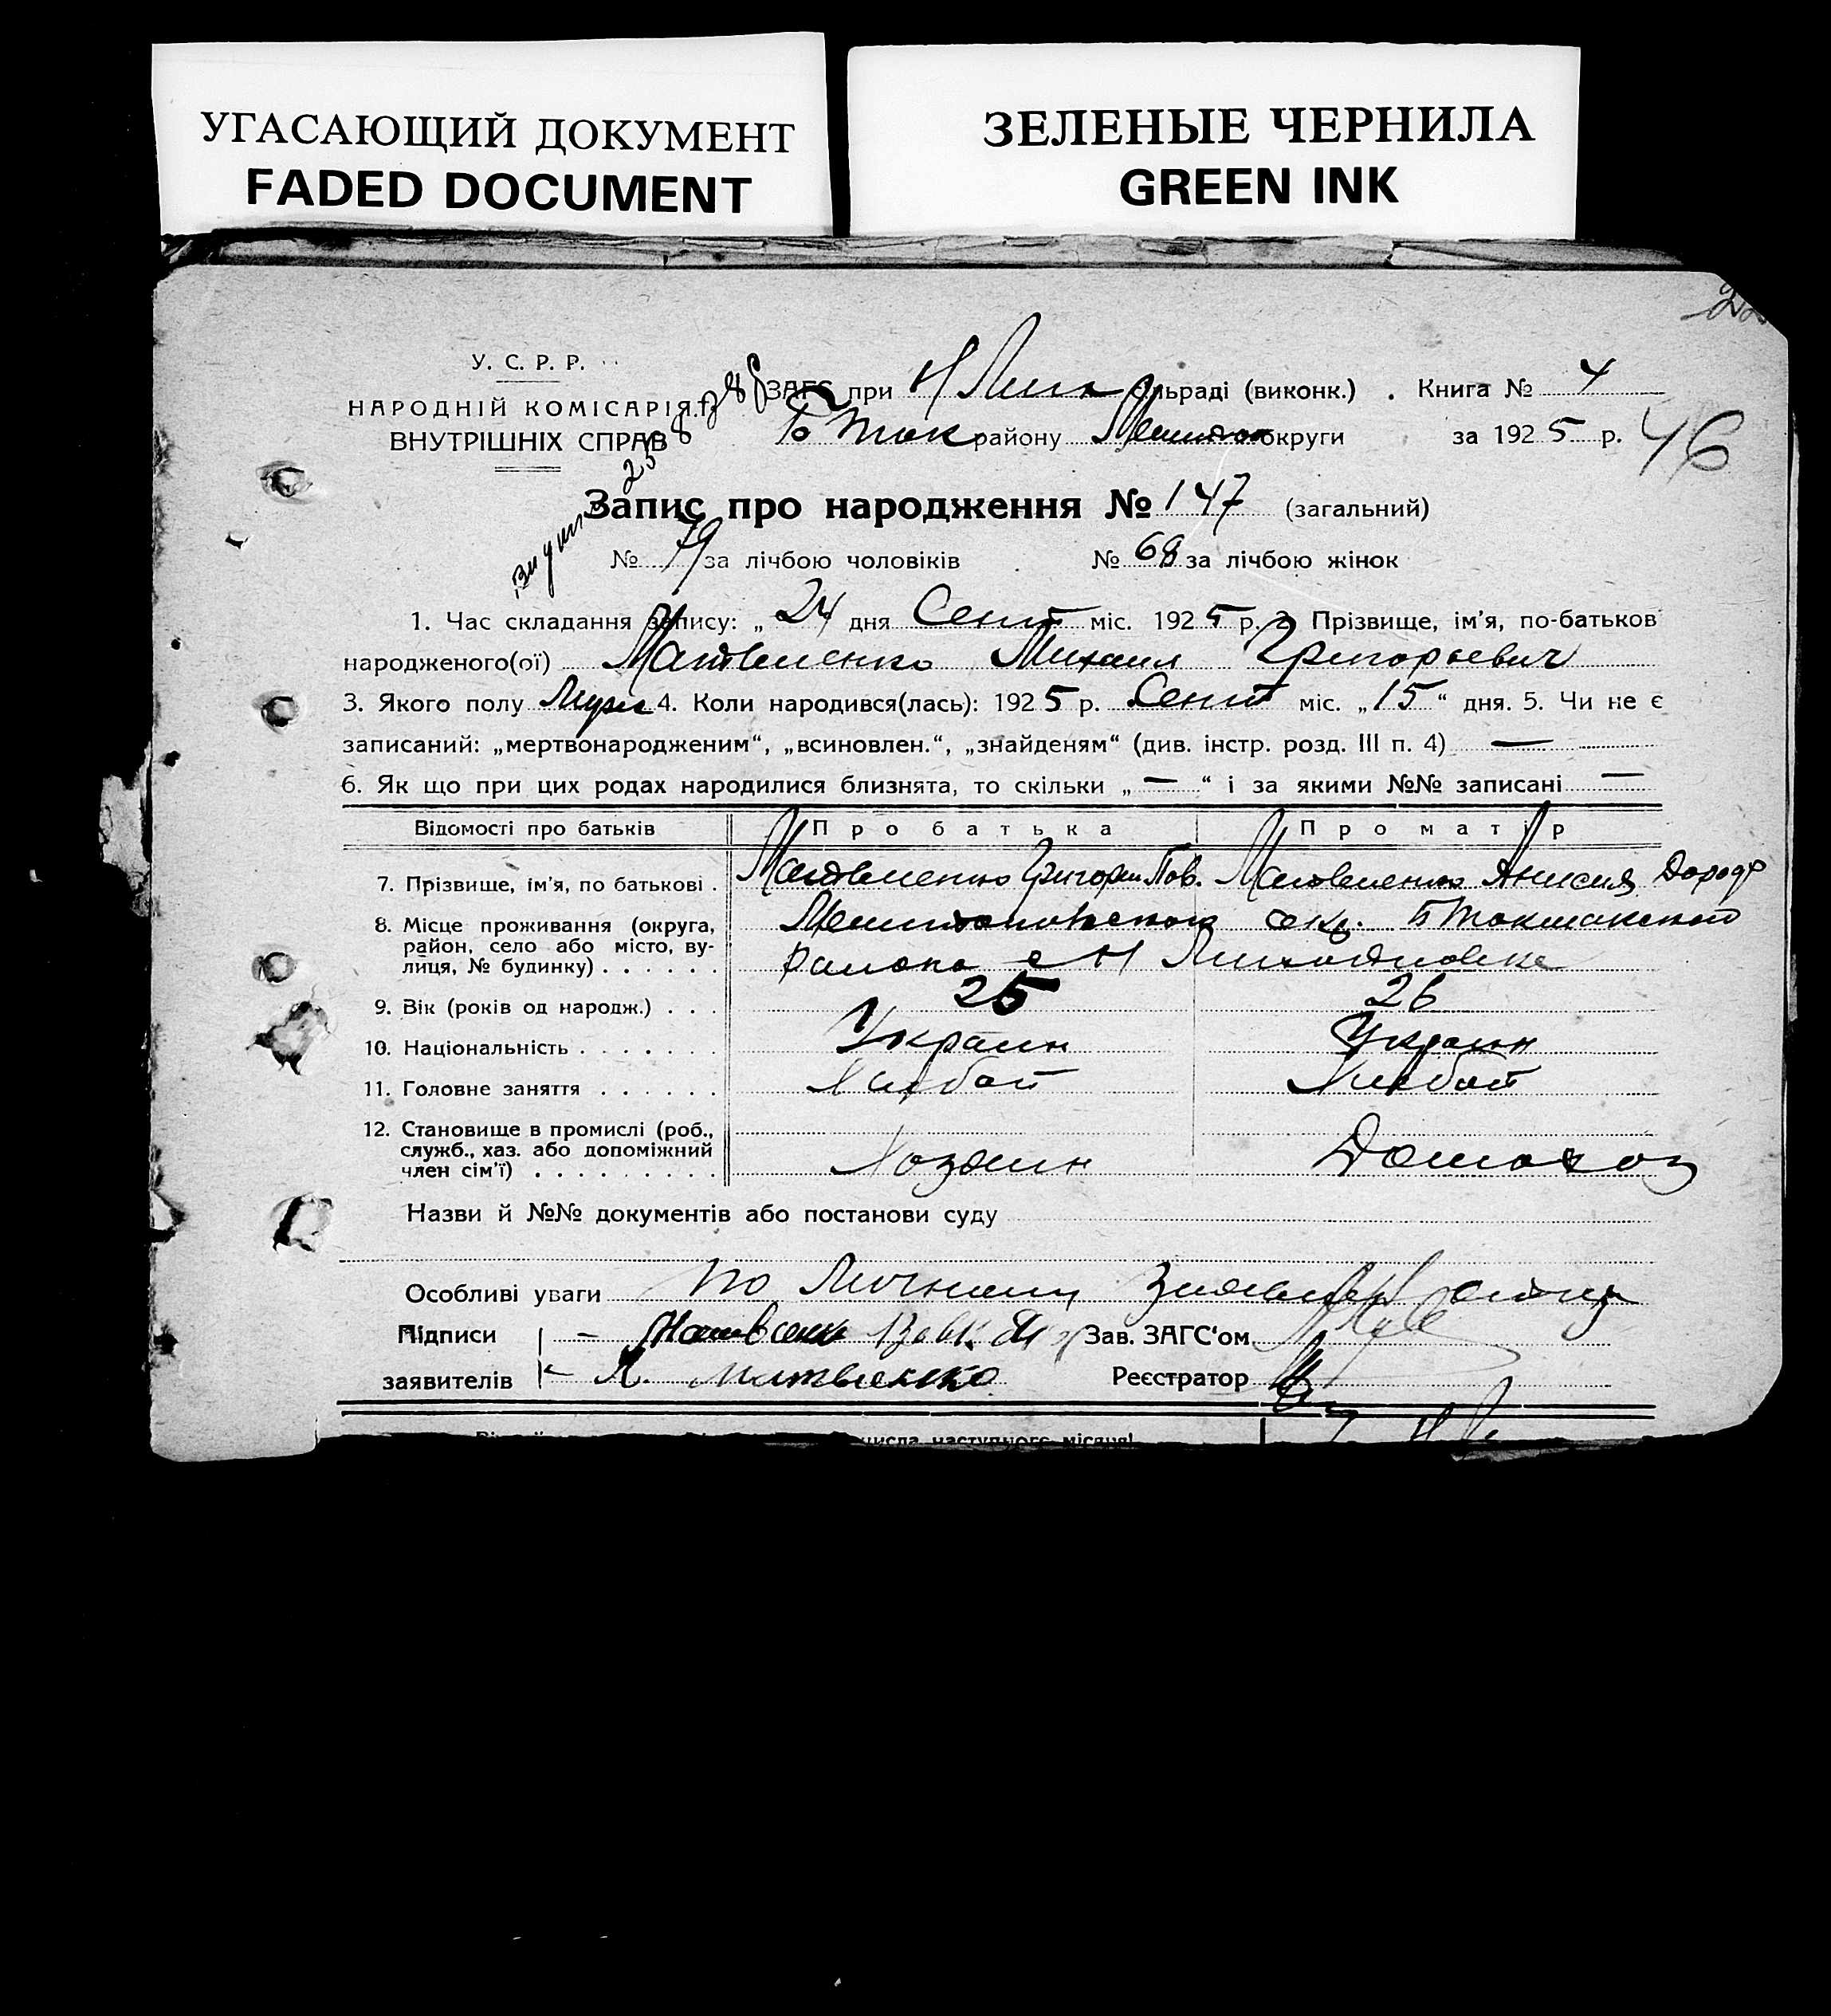 УГАСАЮЩИЙ ДОКУМЕНТ
FADED DOCUMENT
ЗЕЛЕНЫЕ ЧЕРНИЛА
GREEN INK
У. С. Р. Р.
НАРОДНІЙ КОМІСАРІЯТ
ВНУТРІШНІХ СПРАВ
ЗАГС при Н сільраді (виконк.) . Книга № 4
Б Ток району Мелитоп округи за 1925 р. 46
Запис про народження № 147 (загальний)
№ 79 за лічбою чоловіків № 68 за лічбою жінок
1. Час складання запису: „24 дня Сент міс. 1925 р. 2. Прізвище, ім'я, по-батьков
народженого(ої) Матвиенко Михаил Григорьевич
3. Якого полу Муж 4. Коли народився(лась): 1925 р. Сент міс. „15“ дня. 5. Чи не є
записаний: „мертвонародженим“, „всиновлен.“, „знайденям“ (див. інстр. розд. III п. 4) —
6. Як що при цих родах народилися близнята, то скільки „—“ і за якими №№ записані —
Відомості про батьків Про батька Про матір
7. Прізвище, ім'я, по батькові . Матвиенко Григорий Пав. Матвиенко Анисия Дороф
8. Місце проживання (округа, район, село або місто, вулиця, № будинку) . . . . . . Мелитопольской окр. Б Токмакского
района с Н
9. Вік (років од народж.) . . . 25 26
10. Національність . . . . . . . Украин Украин
11. Головне заняття . . . . . . Хлебоп Хлебоп
12. Становище в промислі (роб., служб., хаз. або допоміжний член сім'ї) . . . . . . . . . Хозяин Домохоз
Назви й №№ документів або постанови суду
Особливі уваги по Личному Заявлению отца
Підписи — Зав. ЗАГС'ом
заявителів — Матвиенко Реєстратор
числа наступного місяця!